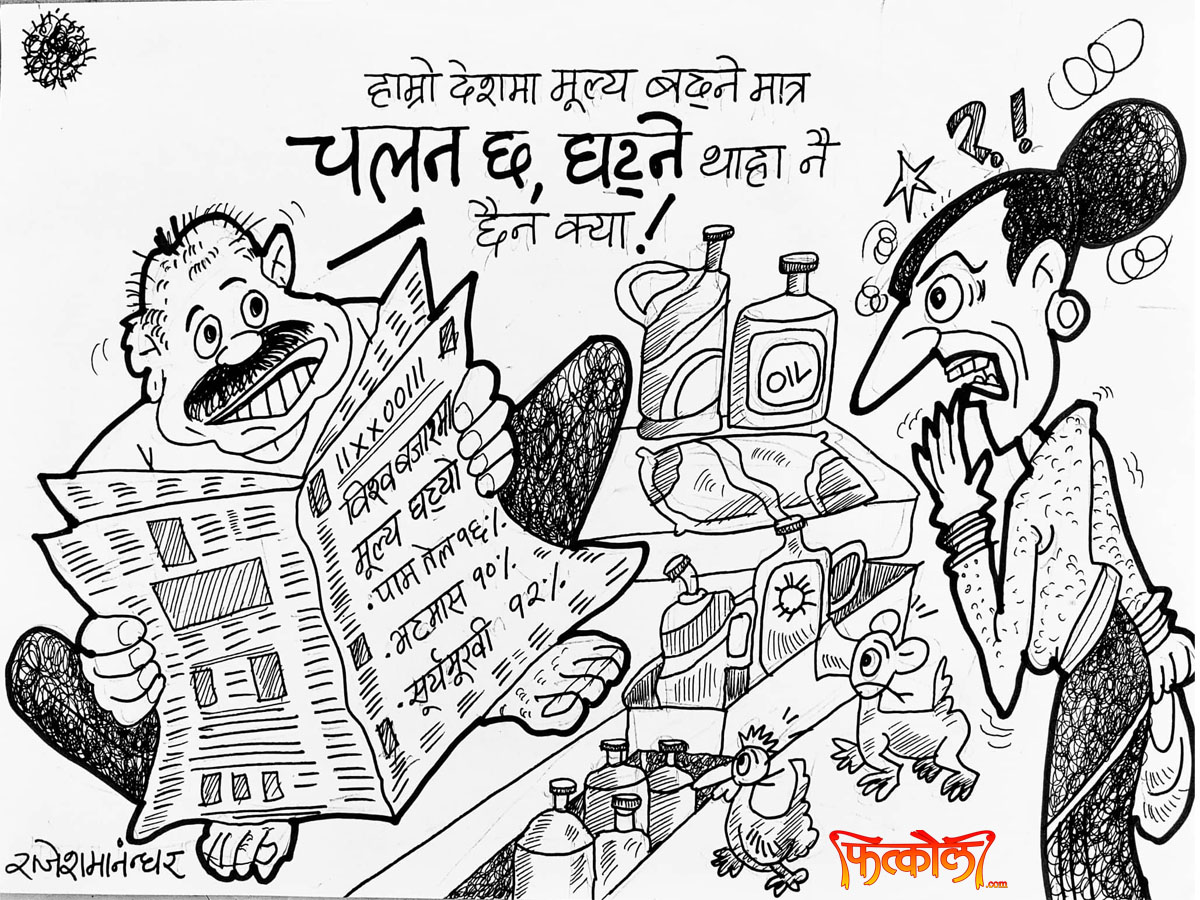 हाम्रो देशमा मूल्य बढ्ने मात्र
चलन छ, घट्ने थाहा नै
छैन क्या!
?!
११××००१११
विश्व बजारमा
मूल्य घट्यो
• पाम तेल १६%
• भटमास १०%
• सूर्यमूखी १२%
OIL
राजेशमानन्धर
फत्कौलो
.com